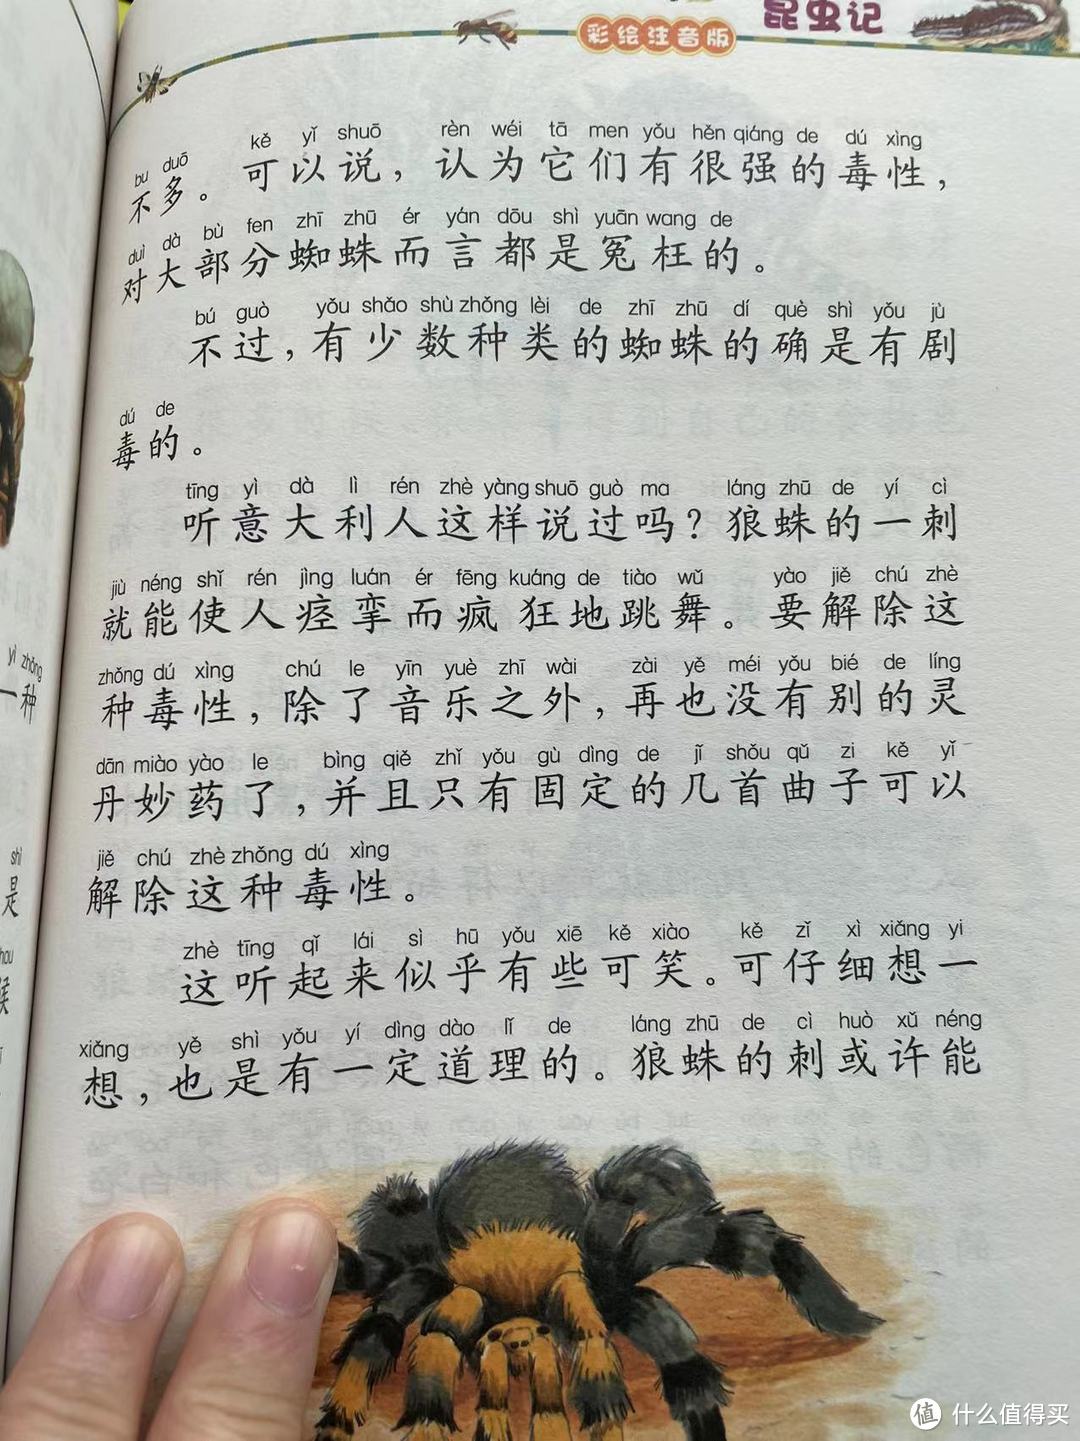 昆虫记
彩绘注音版
bu duō kě yǐ shuō rèn wéi tā men yǒu hěn qiáng de dú xìng
不多。可以说，认为它们有很强的毒性，
duì dà bù fen zhī zhū ér yán dōu shì yuān wang de
对大部分蜘蛛而言都是冤枉的。
bú guò yǒu shǎo shù zhǒng lèi de zhī zhū dí què shì yǒu jù
不过，有少数种类的蜘蛛的确是有剧
dú de
毒的。
tīng yì dà lì rén zhè yàng shuō guò ma láng zhū de yí cì
听意大利人这样说过吗？狼蛛的一刺
jiù néng shǐ rén jìng luán ér fēng kuáng de tiào wǔ yào jiě chú zhè
就能使人痉挛而疯狂地跳舞。要解除这
zhǒng dú xìng chú le yīn yuè zhī wài zài yě méi yǒu bié de líng
种毒性，除了音乐之外，再也没有别的灵
dān miào yào le bìng qiě zhǐ yǒu gù dìng de jǐ shǒu qǔ zi kě yǐ
丹妙药了，并且只有固定的几首曲子可以
jiě chú zhè zhǒng dú xìng
解除这种毒性。
zhè tīng qǐ lái sì hū yǒu xiē kě xiào kě zǐ xì xiǎng yi
这听起来似乎有些可笑。可仔细想一
xiǎng yě shì yǒu yí dìng dào lǐ de láng zhū de cì huò xǔ néng
想，也是有一定道理的。狼蛛的刺或许能
yì zhǒng
一种
shì
是
hou
候
值 什么值得买